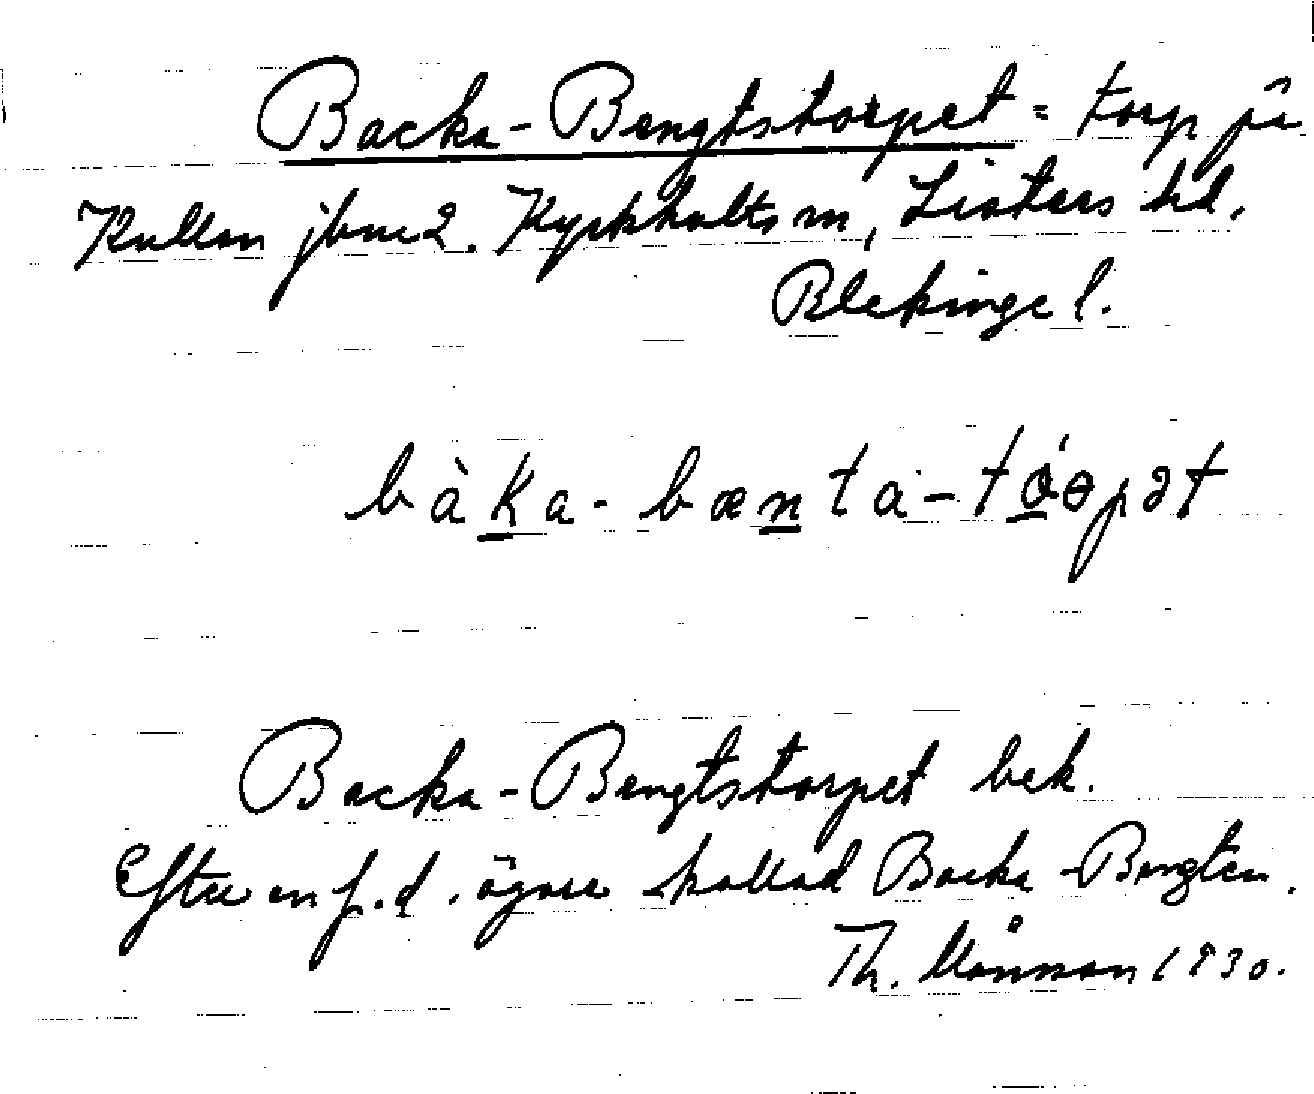 Backa-Bengtstorpet = torp på
Kullen jbnr 2. Kyrkhults sn, Listers hd.
Blekinge l.
bàka-bænta-tóɵpət
Backa-Bengtstorpet bek.
Efter en f.d. ägare kallad Backa-Bengten.
Th. Månsson 1930.